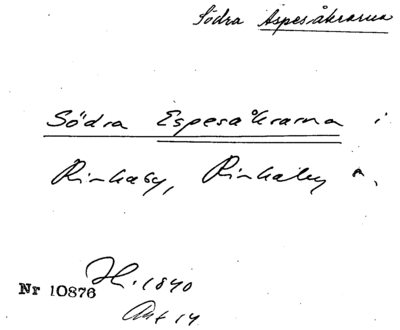 Södra Aspesåkrarna
Södra Espesåkrarna i
Rinkaby, Rinkaby s.
Nr 10876 H. 1840
Akt 14